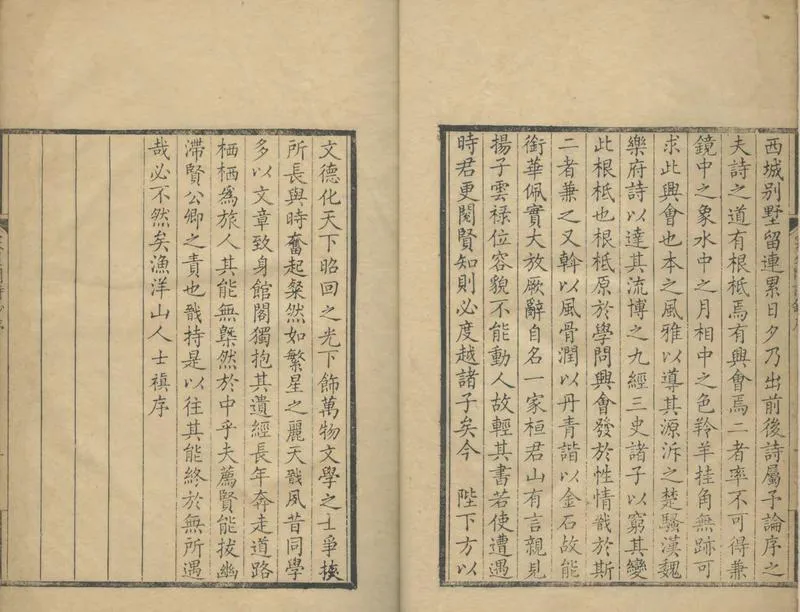 西城别墅留連累日夕乃出前後詩屬予論序之
夫詩之道有根柢焉有興會焉二者率不可得兼
鏡中之象水中之月相中之色羚羊挂角無跡可
求此興會也本之風雅以導其源泝之楚騷漢魏
樂府詩以達其流博之九經三史諸子以窮其變
此根柢也根柢原於學問興會發於性情戩於斯
二者兼之又斡以風骨潤以丹青諧以金石故能
銜華佩實大放厥辭自名一家桓君山有言親見
揚子雲祿位容貌不能動人故輕其書若使遭遇
時君更閱賢知則必度越諸子矣今 陛下方以
文德化天下昭回之光下飾萬物文學之士爭挾
所長與時奮起粲然如繁星之麗天戩夙昔同學
多以文章致身館閣獨抱其遺經長年奔走道路
栖栖為旅人其能無槩然於中乎夫薦賢能拔幽
滯賢公卿之責也戩持是以往其能終於無所遇
哉必不然矣漁洋山人士禛序